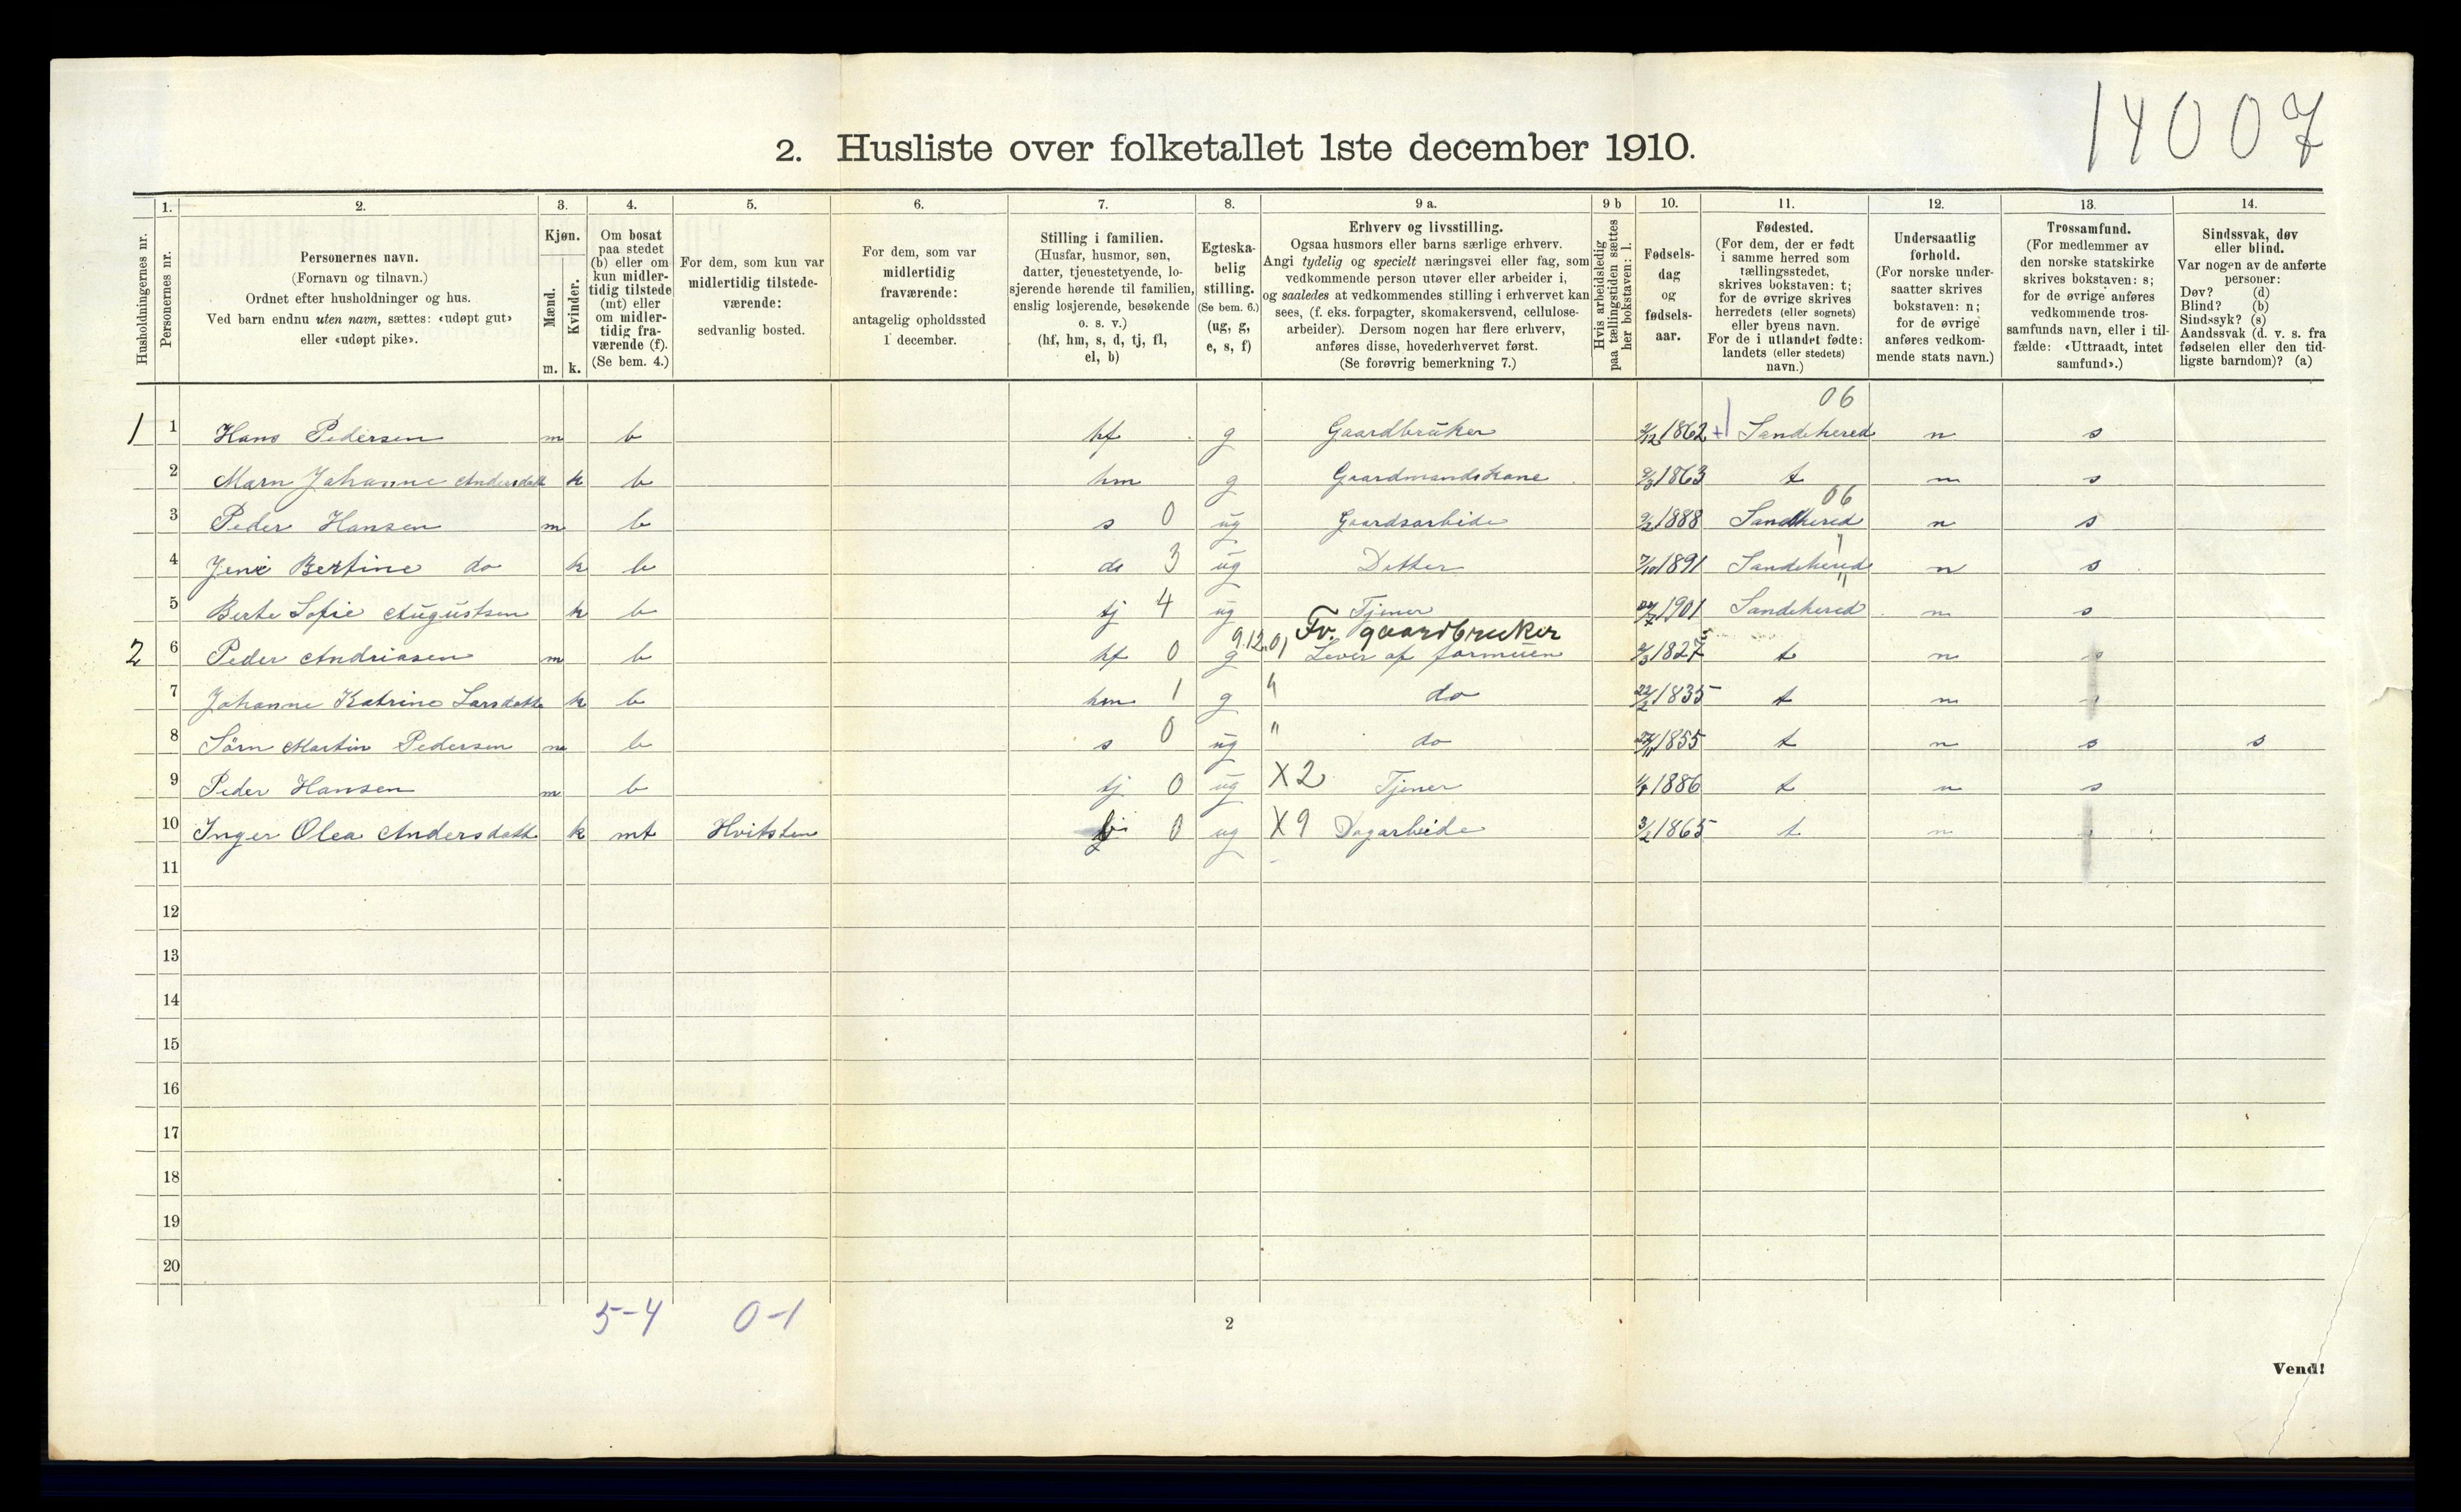 14007
2. Husliste over folketallet 1ste december 1910.
Husholdningernes nr.
1. Personernes nr.
2. Personernes navn. (Fornavn og tilnavn.) Ordnet efter husholdninger og hus. Ved barn endnu uten navn, sættes: «udøpt gut» eller «udøpt pike».
3. Kjøn. Mænd. m. Kvinder. k.
4. Om bosat paa stedet (b) eller om kun midlertidig tilstede (mt) eller om midlertidig fraværende (f). (Se bem. 4.)
5. For dem, som kun var midlertidig tilstedeværende: sedvanlig bosted.
6. For dem, som var midlertidig fraværende: antagelig opholdssted 1 december.
7. Stilling i familien. (Husfar, husmor, søn, datter, tjenestetyende, losjerende hørende til familien, enslig losjerende, besøkende o. s. v.) (hf, hm, s, d, tj, fl, el, b)
8. Egteskabelig stilling. (Se bem. 6.) (ug, g, e, s, f)
9 a. Erhverv og livsstilling. Ogsaa husmors eller barns særlige erhverv. Angi tydelig og specielt næringsvei eller fag, som vedkommende person utøver eller arbeider i, og saaledes at vedkommendes stilling i erhvervet kan sees, (f. eks. forpagter, skomakersvend, cellulosearbeider). Dersom nogen har flere erhverv, anføres disse, hovederhvervet først. (Se forøvrig bemerkning 7.)
9 b Hvis arbeidsledig paa tællingstiden sættes her bokstaven: l.
10. Fødselsdag og fødselsaar.
11. Fødested. (For dem, der er født i samme herred som tællingsstedet, skrives bokstaven: t; for de øvrige skrives herredets (eller sognets) eller byens navn. For de i utlandet fødte: landets (eller stedets) navn.)
12. Undersaatlig forhold. (For norske undersaatter skrives bokstaven: n; for de øvrige anføres vedkommende stats navn.)
13. Trossamfund. (For medlemmer av den norske statskirke skrives bokstaven: s; for de øvrige anføres vedkommende trossamfunds navn, eller i tilfælde: «Uttraadt, intet samfund».)
14. Sindssvak, døv eller blind. Var nogen av de anførte personer: Døv? (d) Blind? (b) Sindssyk? (s) Aandssvak (d. v. s. fra fødselen eller den tidligste barndom)? (a)
06
1 1 Hans Pedersen m b hf g Gaardbruker 2/12 1862 Sandehered n s
2 Marn Johanne Andersdatt k b hm g Gaardmandskone 9/3 1863 t n s
06
3 Peder Hansen m b s 0 ug Gaardsarbide 9/2 1888 Sandehered n s
4 Jene Bertine do k b d 3 ug Datter 7/10 1891 Sandehered n s
5 Berte Sofie Augustsen k b tj 4 ug Tjener 1901 Sandehered n s
9.12.01 Fv. gaardbruker
2 6 Peder Andriasen m b hf 0 g Lever af formuen 1827 t n s
7 Johanne Katrine Larsdatte k b hm 1 g " do 22/2 1835 t n
8 Sørn Martin Pedersen m b s 0 ug " do 1855 t n s s
9 Peder Hansen m b tj 0 ug X2 Tjener 1886 t n s
10 Inger Olea Andersdatt k mt Hvitsten 0 ug X9 Dagarbeide 3/2 1865 t n
11
12
13
14
15
16
17
18
19
20
5-4 0-1
2
Vend!